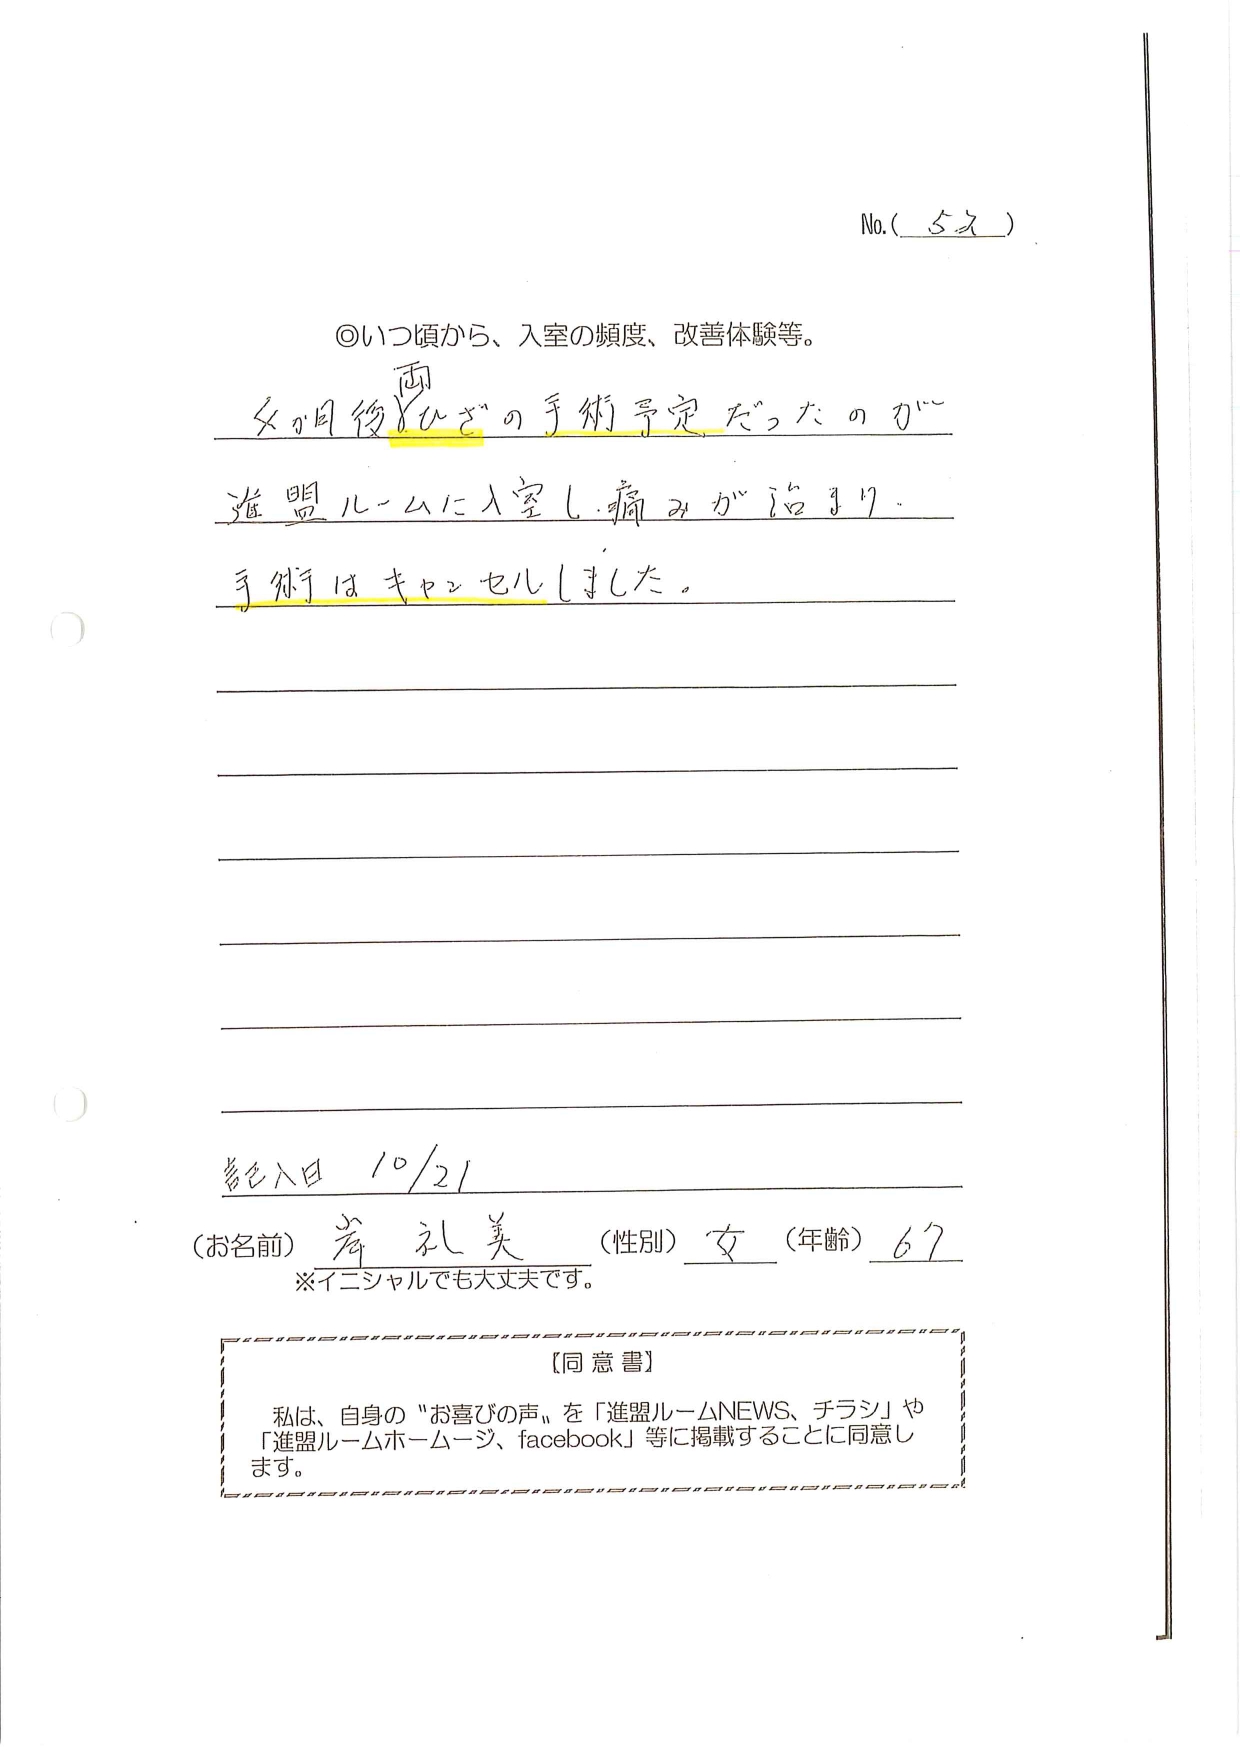 No.( 52 )
◎いつ頃から、入室の頻度、改善体験等。
両
ヶ月後ひざの手術予定だったのが
進盟ルームに入室し、痛みが治まり、
手術はキャンセルしました。
記入日 10/21
（お名前） 岸 礼美 （性別） 女 （年齢） 67
※イニシャルでも大丈夫です。
【同意書】
私は、自身の〝お喜びの声〟を「進盟ルームNEWS、チラシ」や
「進盟ルームホームージ、facebook」等に掲載することに同意し
ます。